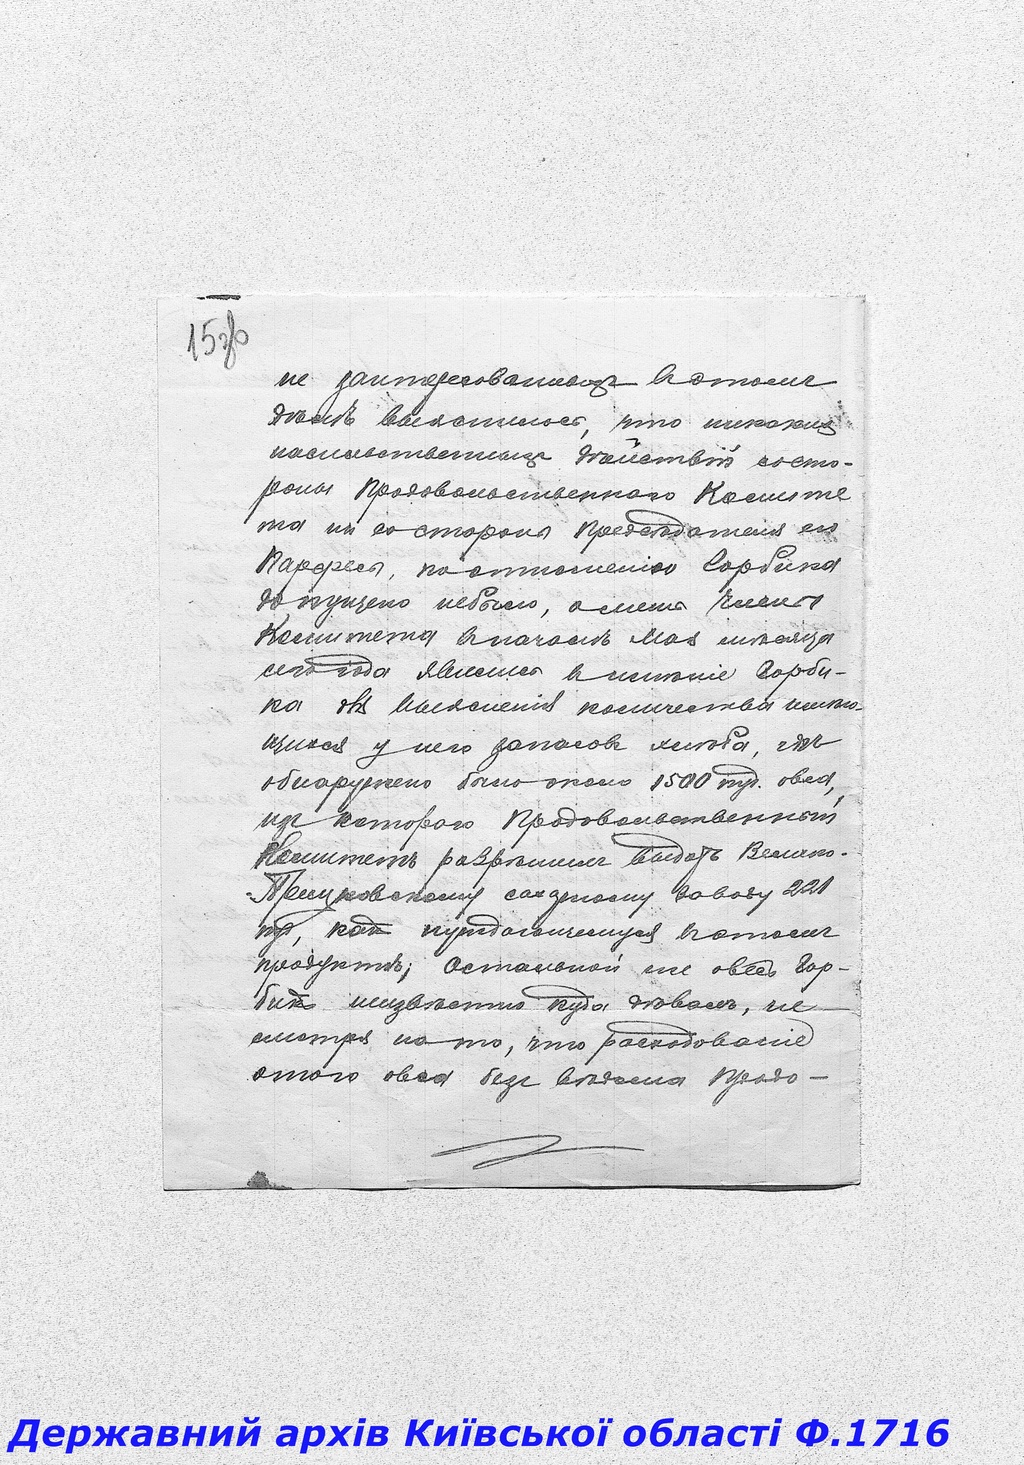 15об
не заинтересованныхъ въ этомъ
дѣлѣ выяснилось, что никакихъ
насильственныхъ дѣйствій со сто-
роны Продовольственнаго Комите
та ни со стороны Предсѣдателя его
по отношенію Горбика
допущено небыло, а лишь члены
Комитета въ началѣ Мая мѣсяца
сего года явились въ имѣніе Горби-
ка для выясненія количества имѣю-
щихся у него запасовъ хлѣба, гдѣ
обнаружено было около 1500 пуд. овса,
изъ котораго Продовольственный
Комитетъ разрѣшилъ выдать Велико-
-Прицковскому сахарному заводу 221
пуд, какъ нуждающемуся въ этомъ
продуктѣ; Остальной же овесъ Гор-
бикъ неизвѣстно куда дѣвалъ, не
смотря на то, что расходованіе
этого овса безъ вѣдома Продо-
Державний архів Київської області Ф.1716